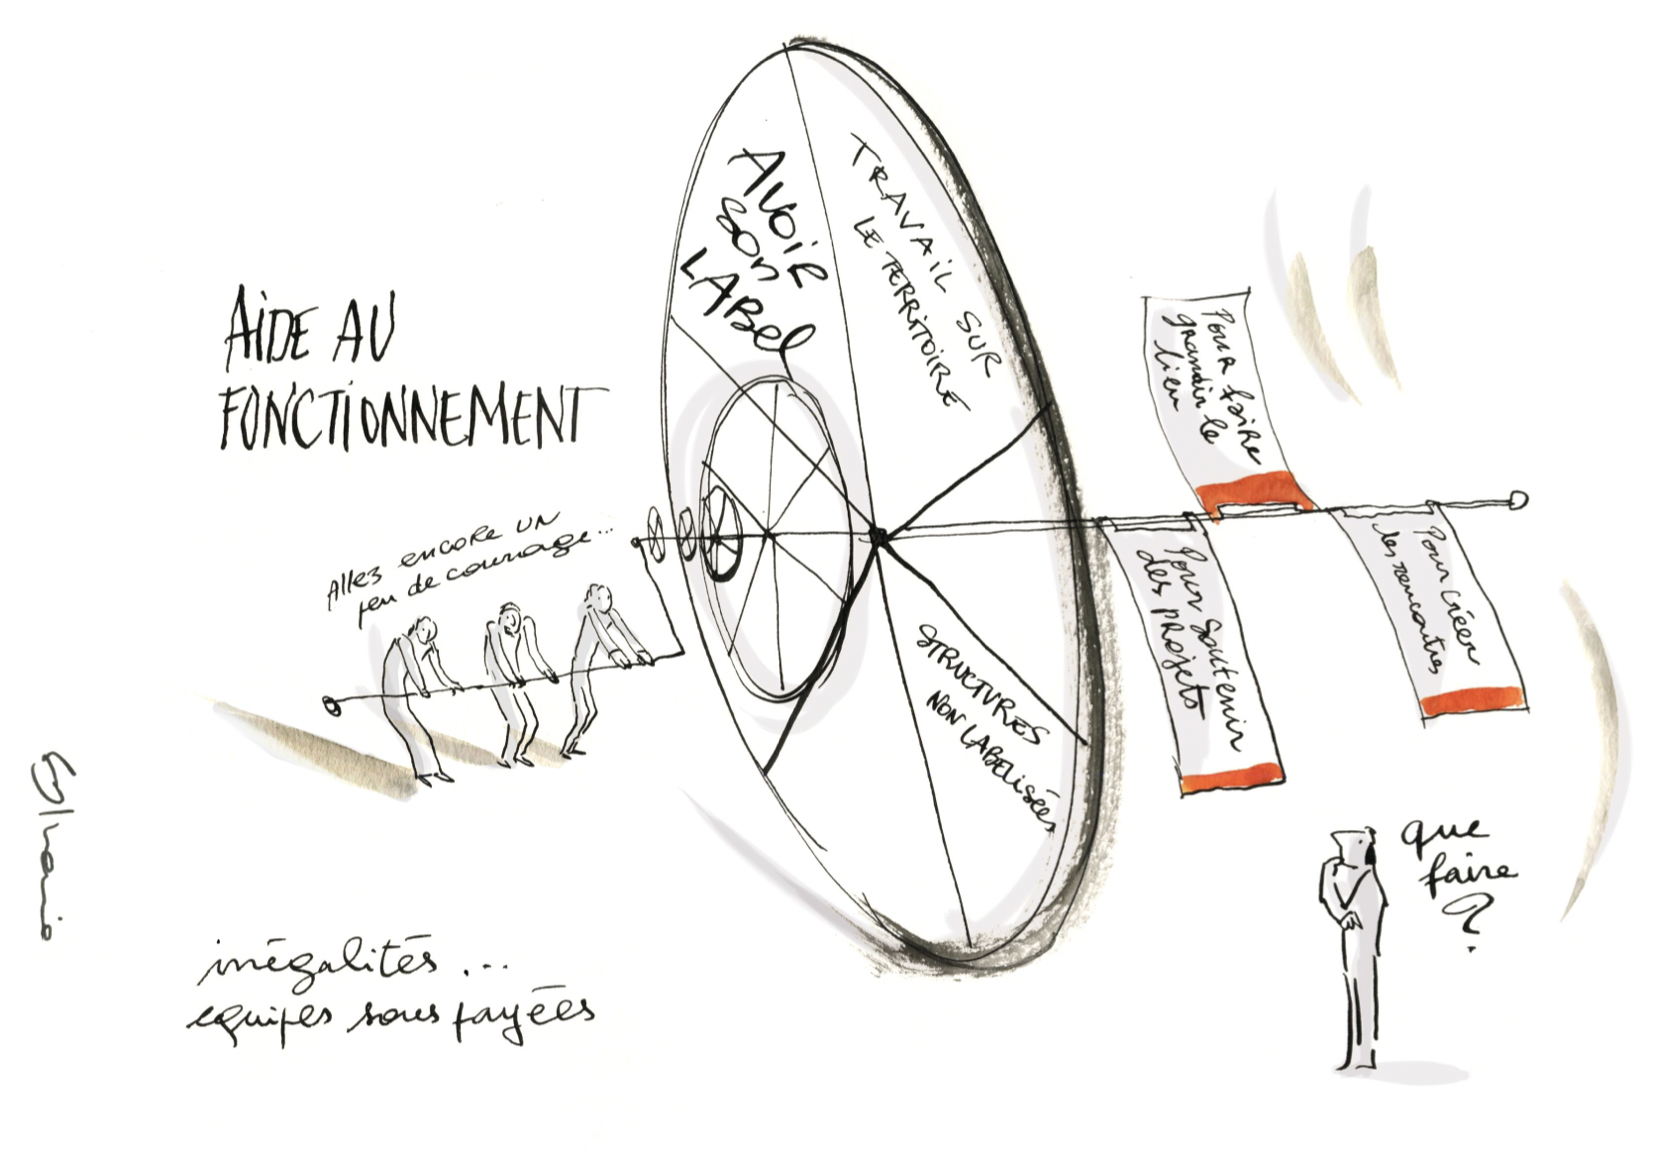 AIDE AU
FONCTIONNEMENT
Allez encore UN
peu de courage...
AVOIR
SON
LABEL
TRAVAIL SUR
LE TERRITOIRE
STRUCTURES
NON LABELISÉES
Pour faire
grandir le
lieu
Pour soutenir
des projets
Pour créer
les rencontres
que
faire
?
inégalités...
equipes sous payées